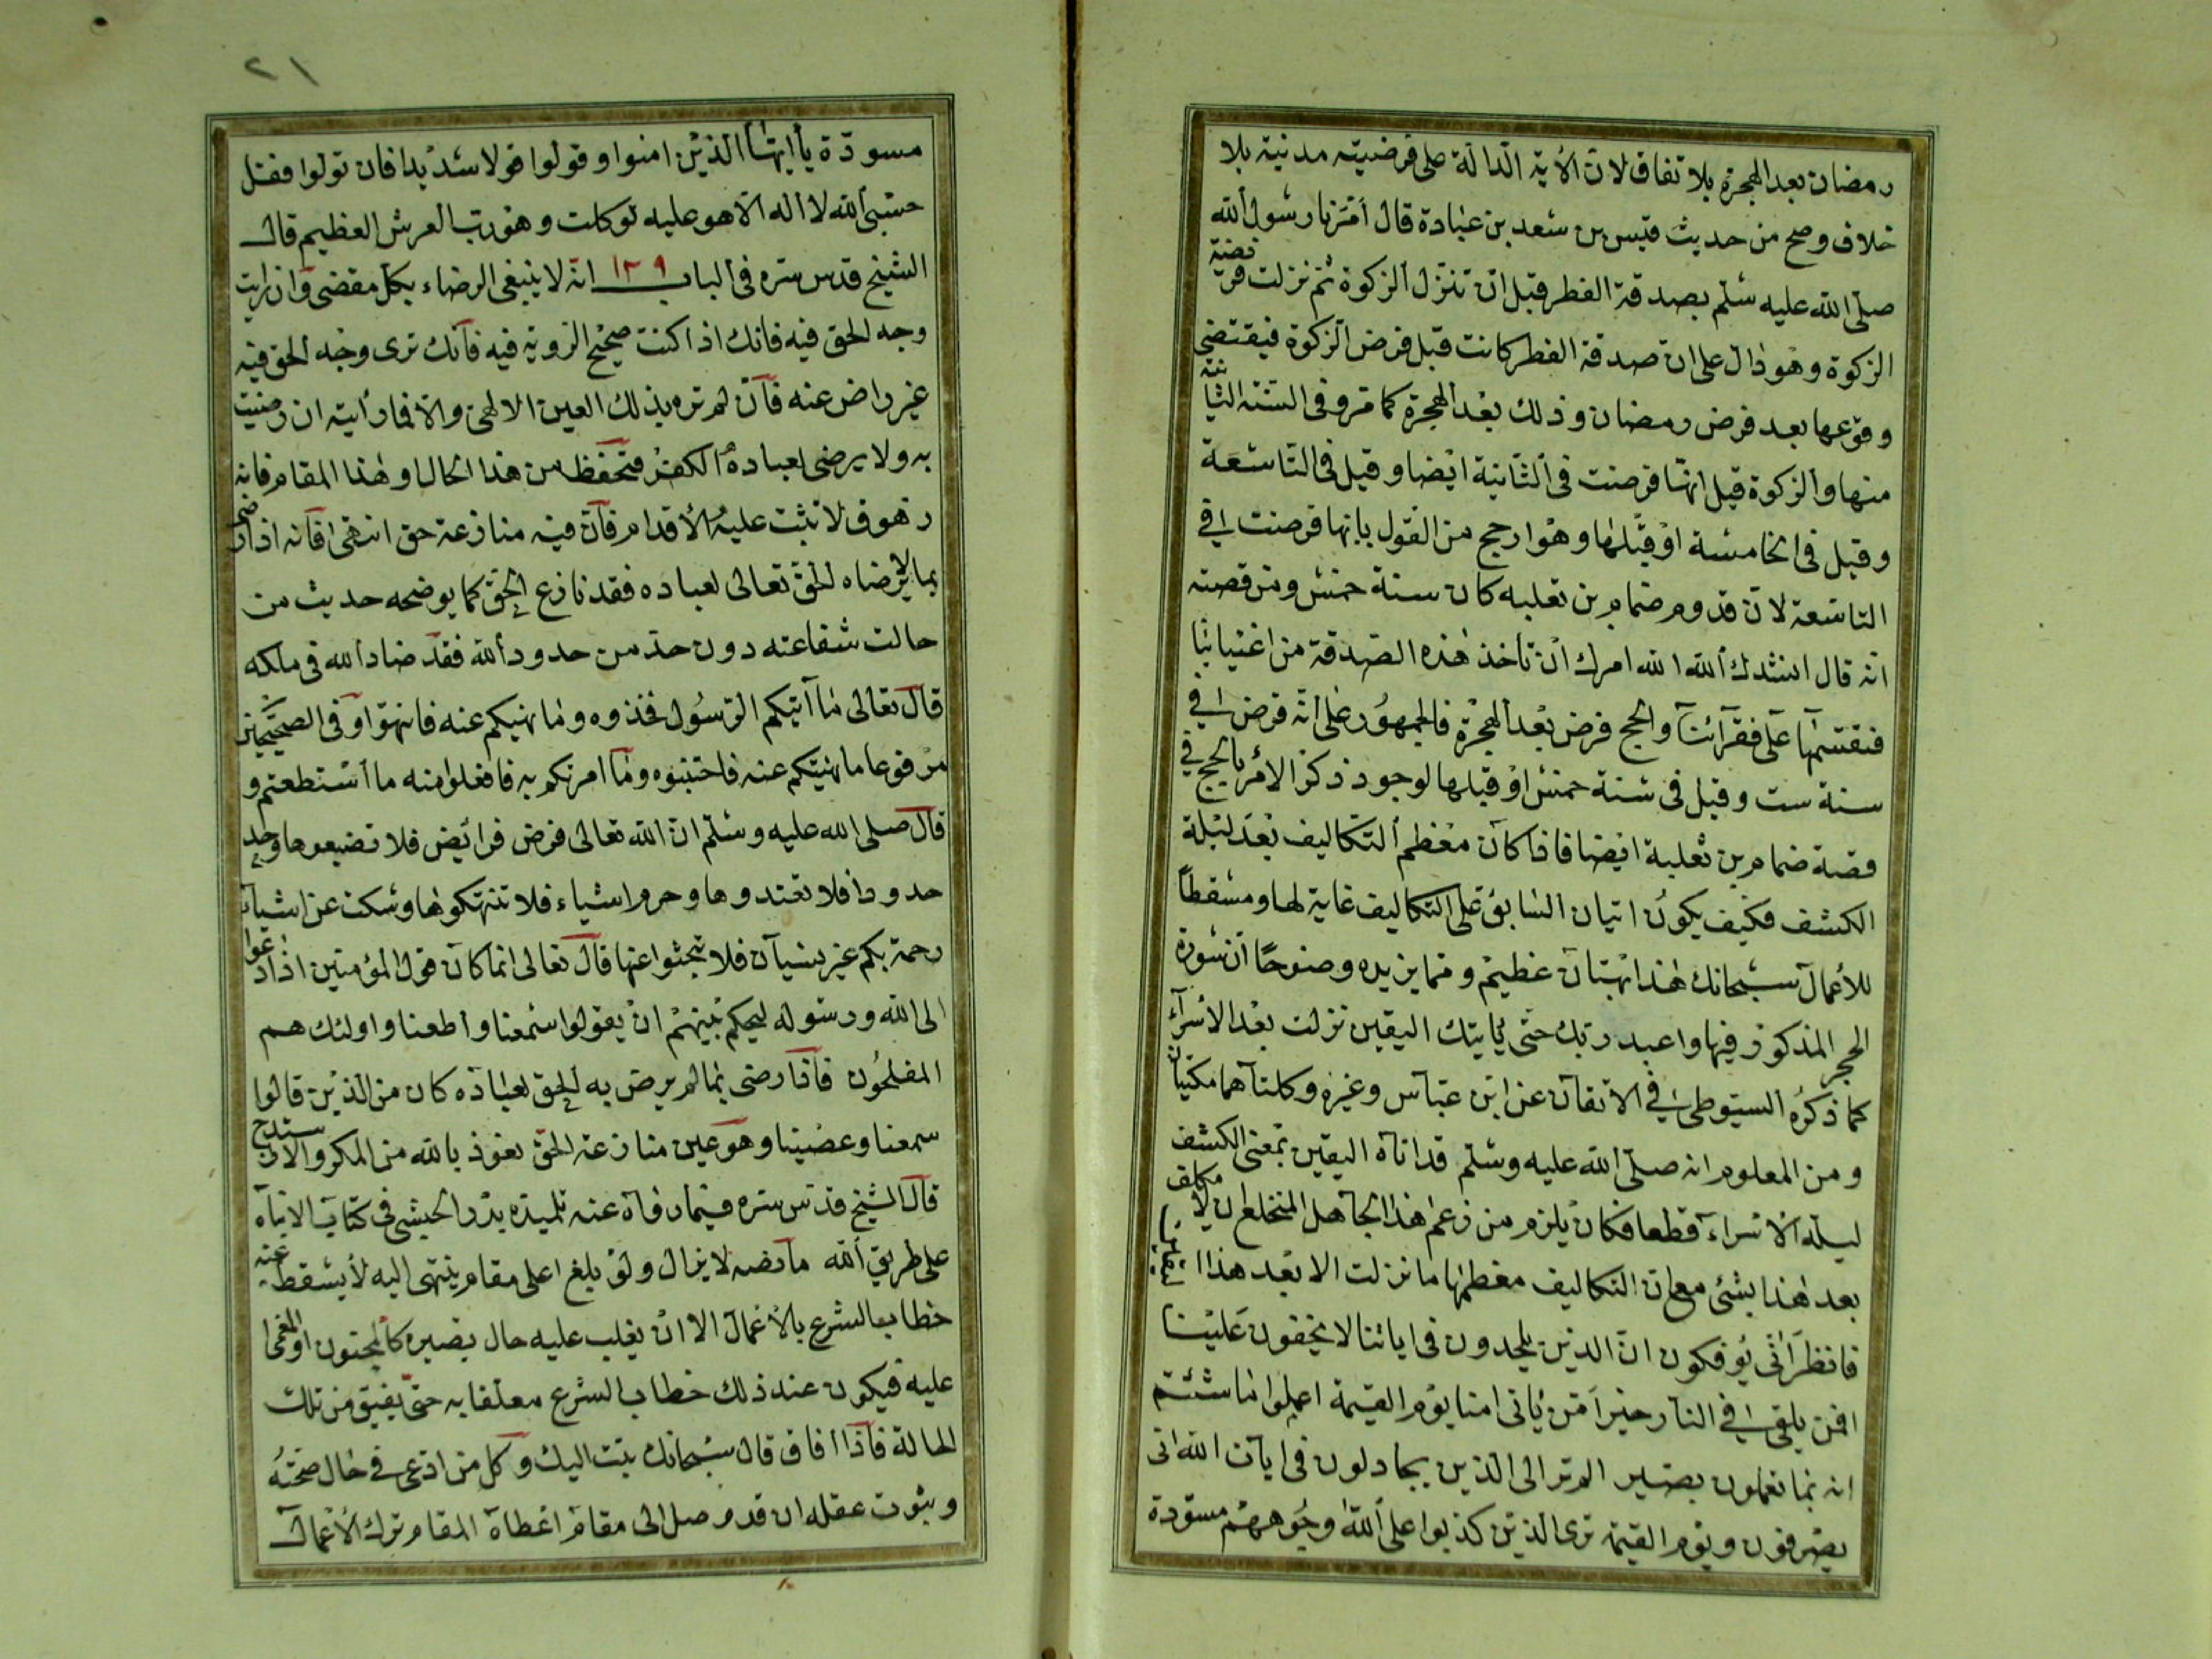 رمضان بعد الهجرة بلا تفاق لان الأية الدالة على فرضيته مدنية بلا
خلاف وصح من حديث قيس بن سعد بن عبادة قال أمرنا رسول الله
صلى الله عليه سلم بصدقة الفطر قبل ان تنزل الزكوة ثم نزلت فريضة
الزكوة وهو دال على ان صدقة الفطر كانت قبل فرض الزكوة فيقتضى
وقوعها بعد فرض رمضان وذلك بعد الهجرة كما مر وفى السنة الثانية
منها والزكوة قيل انها فرضت فى الثانية ايضا وقيل فى التاسعة
وقيل فى الخامسة او قبلها وهو ارجح من القول بانها فرضت فى
التاسعة لان قدوم ضمام بن تعلبه كان سنة خمس ومن قصته
انه قال انشدك الله الله امرك ان تاخذ هذه الصدقة من اغنيائنا
فتقسمها على فقرائنا والحج فرض بعد الهجرة فالجمهور على انه فرض فى
سنة ست وقيل فى سنة خمس او قبلها لوجود ذكر الامر بالحج فى
قصة ضمام بن ثعلبة ايضا فاذا كان معظم التكاليف بعد ليلة
الكشف فكيف يكون اتيان السابق على التكاليف غاية لها ومسقطاً
للأعمال سبحانك هذا بهتان عظيم ومما يزيده وضوحًا ان سورة
الحجر المذكور فيها واعبد ربك حتى ياتيك اليقين نزلت بعد الاسراء
كما ذكره السيوطى فى الاتقان عن ابن عباس وغيره وكلتاهما مكيتان
ومن المعلوم انه صلى الله عليه وسلم قد اتاه اليقين بمعنى الكشف
ليلة الاسراء قطعا فكان يلزم من زعم هذا الجاهل المنخلع ان لا مكلف
بعد هذا بشئ مع ان التكاليف معظمها ما نزلت الا بعد هذا
فانظر انى يؤفكون ان الذين يلحدون فى اياتنا لا يخفون علينا
افمن يلقى فى النار خير امن ياتى امنا يوم القيمة اعملوا ما شئتم
انه بما تعملون بصير الم تر الى الذين يجادلون فى ايات الله انى
يصرفون ويوم القيمة ترى الذين كذبوا على الله وجوههم مسودة
٢١
مسودة يا ايها الذين امنوا وقولوا قولا سديدا فان تولوا فقل
حسبى الله لا اله الا هو عليه توكلت وهو رب العرش العظيم قال
الشيخ قدس سره فى الباب ١٢٩ انه لا ينبغى الرضاء بكل مقضى وان رايت
وجه الحق فيه فانك اذا كنت صحيح الروية فيه فانك ترى وجه الحق فيه
غير راض عنه فان لم تره بذلك العين الالهى والا فما رأيته ان رضيت
به ولا يرضى لعباده الكفر فتحفظ من هذا الحال وهذا المقام فانه
زهوق لا تثبت عليه الأقدام فان فيه منازعة حق انتهى فانه اذا رضى
بما لا يرضاه الحق تعالى لعباده فقد نازع الحق كما يوضحه حديث من
حالت شفاعته دون حد من حدود الله فقد ضاد الله فى ملكه
قال تعالى ما آتيكم الرسول فخذوه وما نهيكم عنه فانتهوا وفى الصحيحين
مرفوعا ما نهيتكم عنه فاجتنبوه وما امرتكم به فافعلوا منه ما استطعتم و
قال صلى الله عليه وسلم ان الله تعالى فرض فرائض فلا تضيعوها وحد
حدودا فلا تعتدوها وحرم اشياء فلا تنتهكوها وسكت عن اشياء
رحمة بكم غير نسيان فلا تبحثوا عنها قال تعالى انما كان قول المؤمنين اذا دعوا
الى الله ورسوله ليحكم بينهم ان يقولوا سمعنا واطعنا واولئك هم
المفلحون فاذا رضى بما لم يرض به الحق لعباده كان من الذين قالوا
سمعنا وعصينا وهو عين منازعة الحق نعوذ بالله من المكر والاستدراج
قال الشيخ قدس سره فيما رواه عنه تلميذه بدر الحبشى فى كتاب الانباه
على طريق الله ما نصه لا يزال ولو بلغ اعلى مقام ينتهى اليه لا يسقط عنه
خطاب الشرع بالأعمال الا ان يغلب عليه حال يصيره كالمجنون او المغمى
عليه فيكون عند ذلك خطاب الشرع معلقا به حتى يفيق من تلك
الحالة فاذا افاق قال سبحانك تبت اليك وكل من ادعى فى حال صحته
وثبوت عقله ان قد وصل الى مقام اعطاه المقام ترك الأعمال